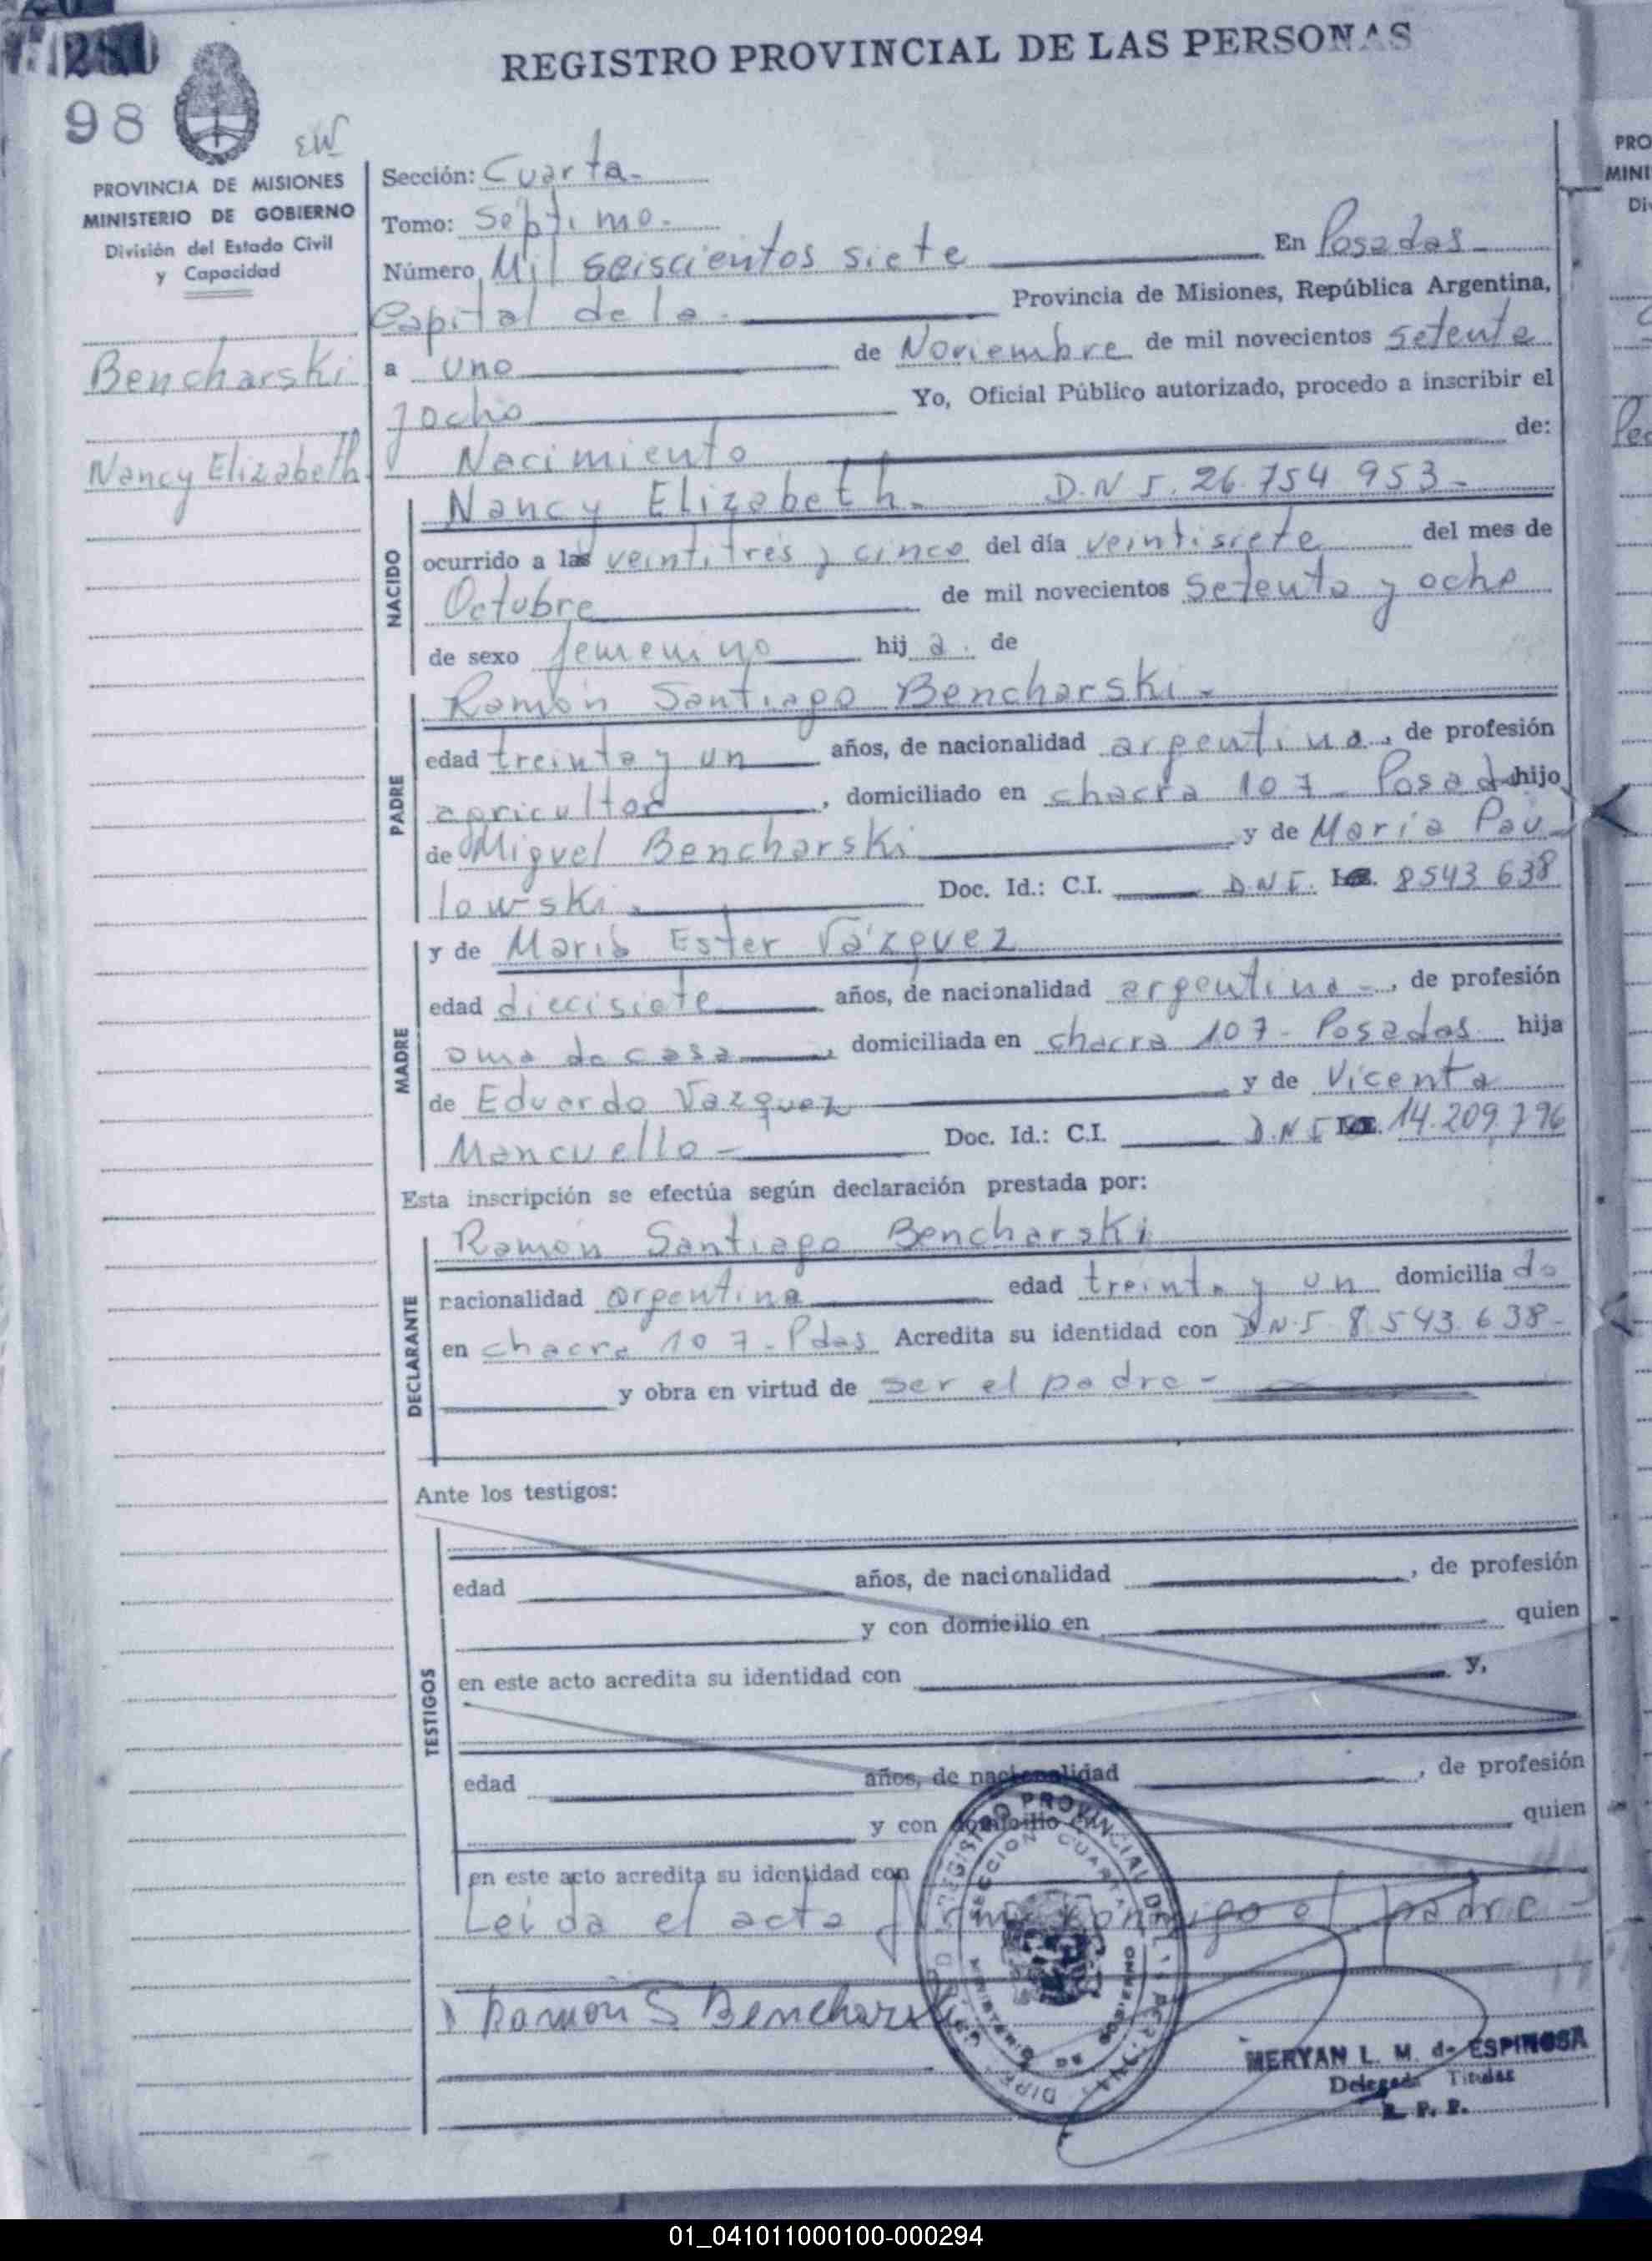 REGISTRO PROVINCIAL DE LAS PERSONAS
98
PROVINCIA DE MISIONES
MINISTERIO DE GOBIERNO
División del Estado Civil
y Capacidad
Bencharski
Nancy Elizabeth
Sección: Cuarta.
Tomo: Septimo.
Número Mil seiscientos siete En Posadas
Capital de la Provincia de Misiones, República Argentina,
a uno de Noviembre de mil novecientos setenta
y ocho Yo, Oficial Público autorizado, procedo a inscribir el
Nacimiento de:
NACIDO
Nancy Elizabeth. D.N.I. 26.754 953.
ocurrido a las veintitres y cinco del día veintisiete del mes de
Octubre de mil novecientos setenta y ocho
de sexo femenino hij a. de
PADRE
Ramón Santiago Bencharski.
edad treinta y un años, de nacionalidad argentina, de profesión
agricultor, domiciliado en chacra 107 - Posad hijo
de Miguel Bencharski y de Maria Pau
lowski. Doc. Id.: C.I. D.N.I. 8543 638
MADRE
y de María Ester Vázquez
edad diecisiete años, de nacionalidad argentina, de profesión
ama de casa, domiciliada en chacra 107 - Posadas hija
de Eduardo Vazquez y de Vicenta
Mancuello - Doc. Id.: C.I. D.N.I 14.209.796
Esta inscripción se efectúa según declaración prestada por:
DECLARANTE
Ramón Santiago Bencharski
nacionalidad argentina edad treinta y un domicilia do
en chacra 107 - Pdas Acredita su identidad con D.N.I. 8.543.638-
y obra en virtud de ser el padre -
Ante los testigos:
TESTIGOS
edad años, de nacionalidad , de profesión
y con domicilio en quien
en este acto acredita su identidad con y,
edad años, de nacionalidad , de profesión
y con domicilio en quien
en este acto acredita su identidad con
Leida el acta firma conmigo el padre -
Ramon S Bencharski
REGISTRO PROVINCIAL DE LAS PERSONAS
SECCION CUARTA
MINISTERIO DE GOBIERNO
MERYAN L. M. de ESPINOSA
Delegada Titular
R. P. P.
01_041011000100-000294